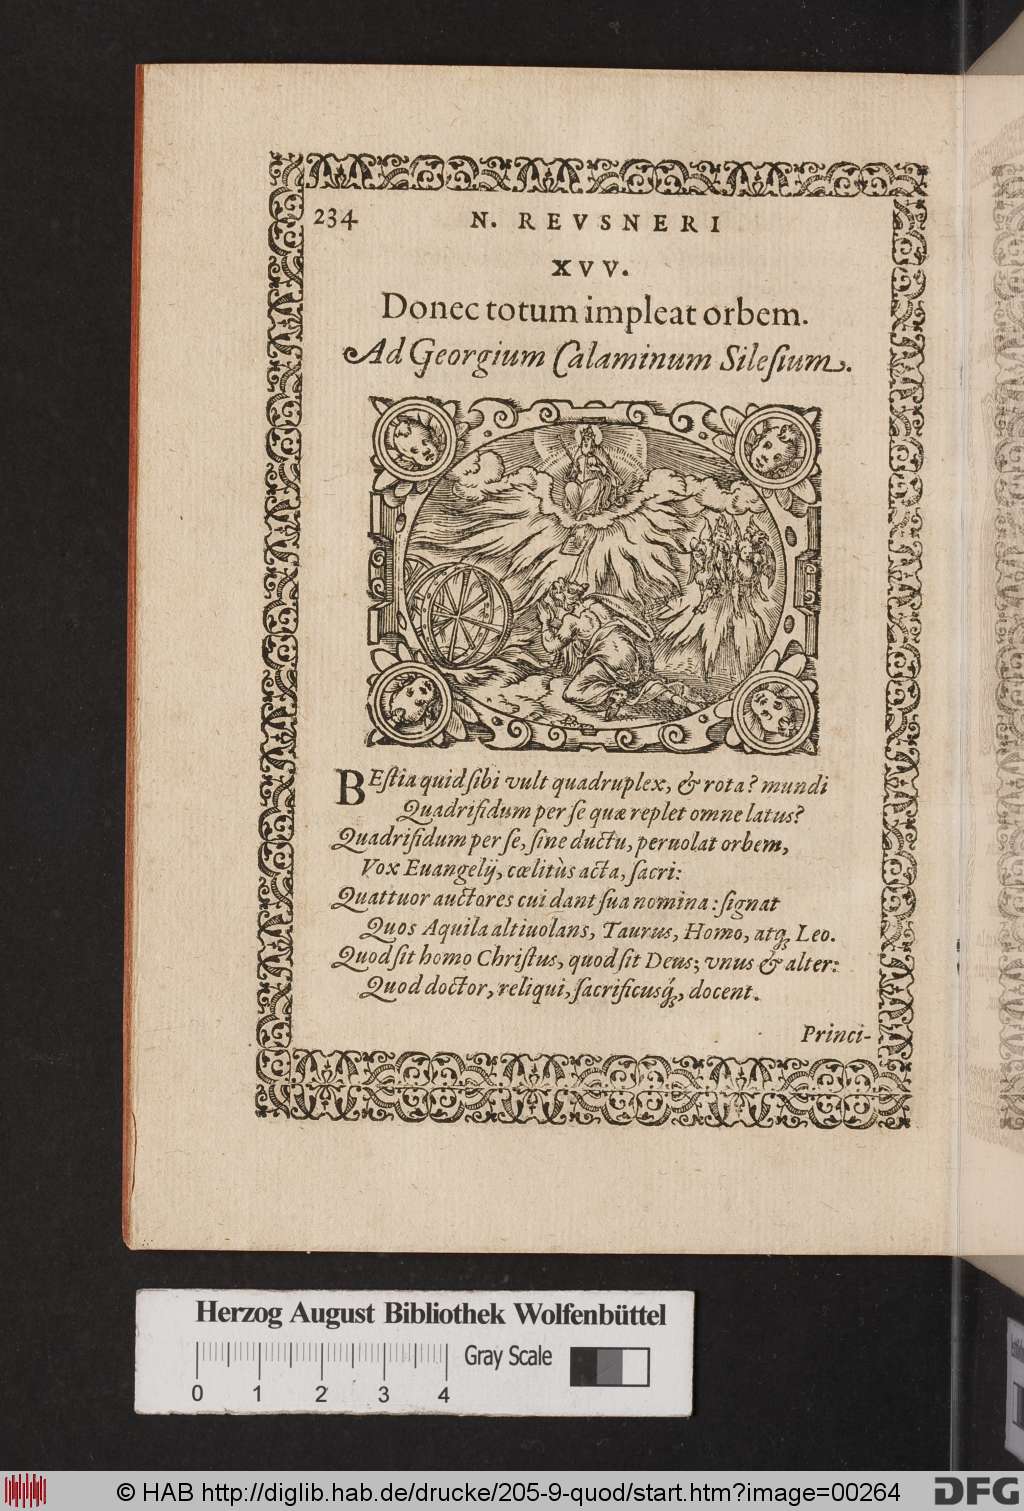 234 N. REVSNERI
XVV.
Donec totum impleat orbem.
Ad Georgium Calaminum Sileſium.
BEſtia quid ſibi vult quadruplex, & rota? mundi
Quadrifidum per ſe quæ replet omne latus?
Quadrifidum per ſe, ſine ductu, peruolat orbem,
Vox Euangelij, cœlitùs acta, ſacri:
Quattuor auctores cui dant ſua nomina: ſignat
Quos Aquila altiuolans, Taurus, Homo, atq; Leo.
Quod ſit homo Chriſtus, quod ſit Deus; vnus & alter:
Quod doctor, reliqui, ſacrificusq́;, docent.
Princi-
Herzog August Bibliothek Wolfenbüttel
Gray Scale
0 1 2 3 4
© HAB http://diglib.hab.de/drucke/205-9-quod/start.htm?image=00264
DFG